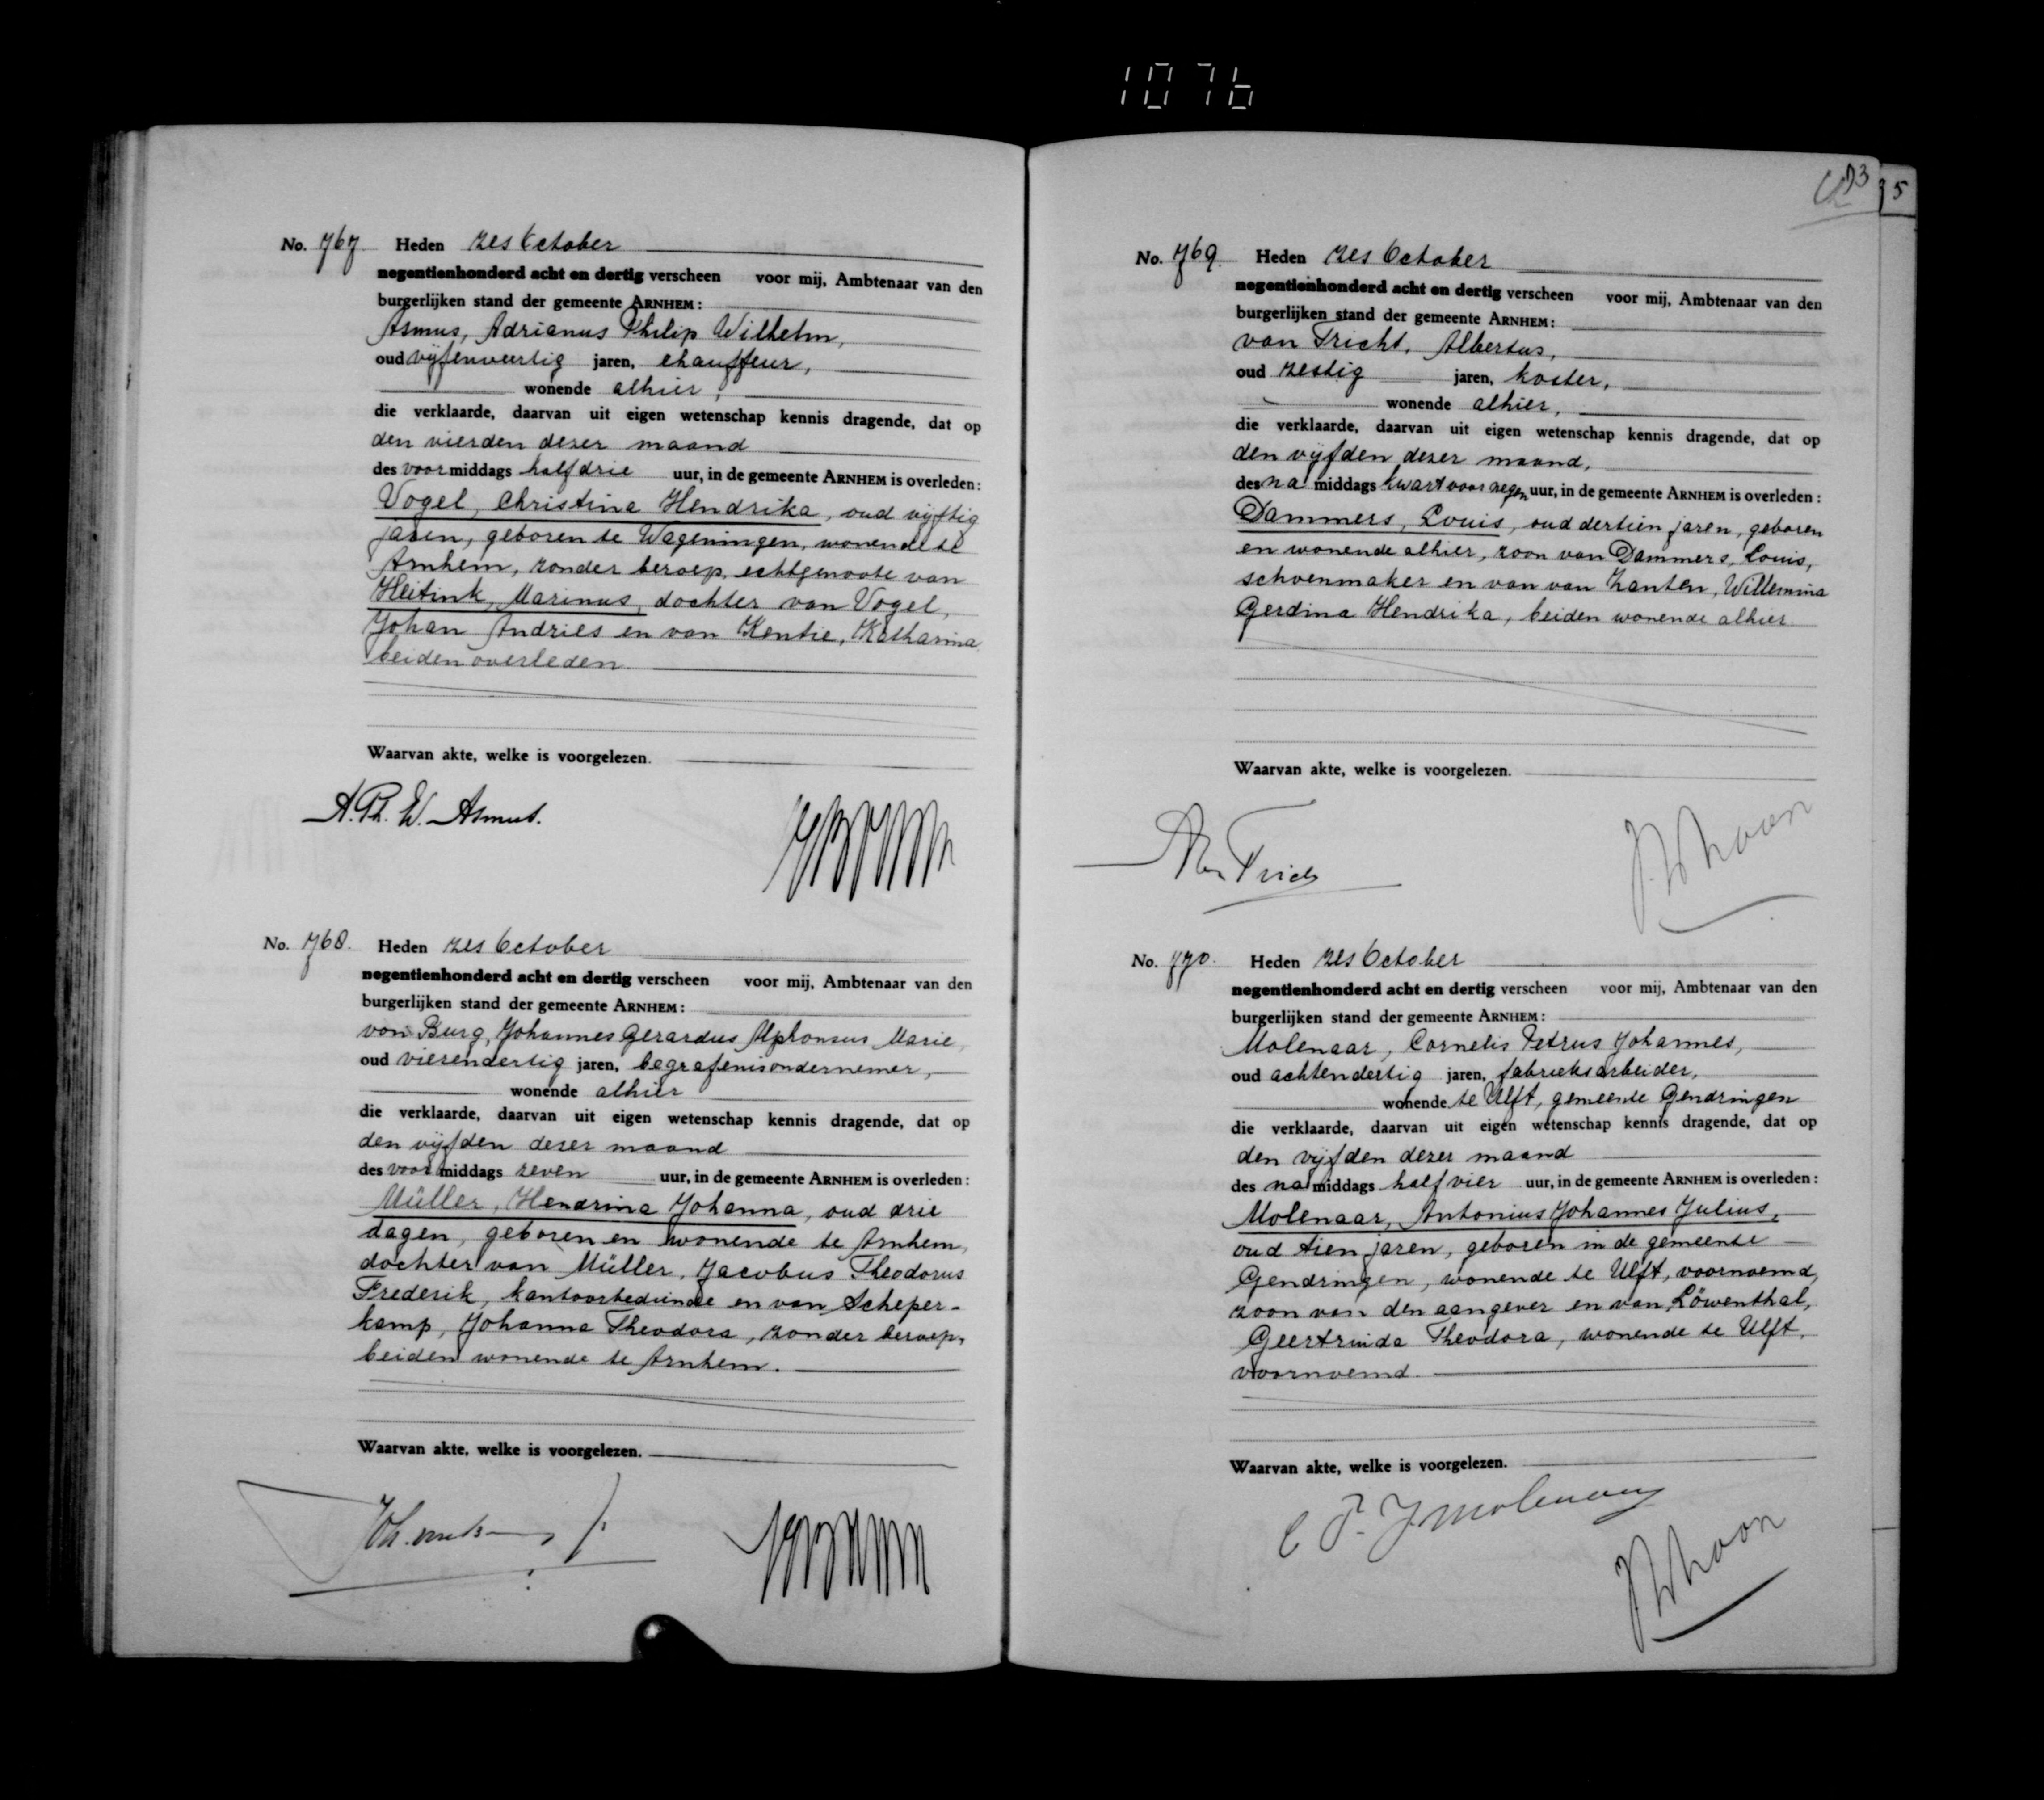 1076
No. 767. Heden zes October
negentienhonderd acht en dertig verscheen voor mij, Ambtenaar van den
burgerlijken stand der gemeente ARNHEM:
Asmus, Adrianus Philip Wilhelm,
oud vijfenveertig jaren, chauffeur,
wonende alhier,
die verklaarde, daarvan uit eigen wetenschap kennis dragende, dat op
den vierden dezer maand
des voormiddags half drie uur, in de gemeente ARNHEM is overleden:
Vogel, Christina Hendrika, oud vijftig
jaren, geboren te Wageningen, wonende te
Arnhem, zonder beroep, echtgenoote van
Heitink, Marinus, dochter van Vogel,
Johan Andries en van Kentie, Katharina
beiden overleden.
Waarvan akte, welke is voorgelezen.
A. Ph. W. Asmus.
No. 768. Heden zes October
negentienhonderd acht en dertig verscheen voor mij, Ambtenaar van den
burgerlijken stand der gemeente ARNHEM:
von Burg, Johannes Gerardus Alphonsus Marie,
oud vierendertig jaren, begrafenisondernemer,
wonende alhier
die verklaarde, daarvan uit eigen wetenschap kennis dragende, dat op
den vijfden dezer maand
des voormiddags zeven uur, in de gemeente ARNHEM is overleden:
Müller, Hendrina Johanna, oud drie
dagen, geboren en wonende te Arnhem,
dochter van Müller, Jacobus Theodorus
Frederik, kantoorbediende en van Scheper-
kamp, Johanna Theodora, zonder beroep,
beiden wonende te Arnhem.
Waarvan akte, welke is voorgelezen.
5
No. 769. Heden zes October
negentienhonderd acht en dertig verscheen voor mij, Ambtenaar van den
burgerlijken stand der gemeente ARNHEM:
van Tricht, Albertus,
oud zestig jaren, koster,
wonende alhier,
die verklaarde, daarvan uit eigen wetenschap kennis dragende, dat op
den vijfden dezer maand,
des namiddags kwart voor negen uur, in de gemeente ARNHEM is overleden:
Dammers, Louis, oud dertien jaren, geboren
en wonende alhier, zoon van Dammers, Louis,
schoenmaker en van van Zanten, Willemina
Gerdina Hendrika, beiden wonende alhier.
Waarvan akte, welke is voorgelezen.
No. 770. Heden zes October
negentienhonderd acht en dertig verscheen voor mij, Ambtenaar van den
burgerlijken stand der gemeente ARNHEM:
Molenaar, Cornelis Petrus Johannes,
oud achtendertig jaren, fabrieksarbeider,
wonende te Ulft, gemeente Gendringen
die verklaarde, daarvan uit eigen wetenschap kennis dragende, dat op
den vijfden dezer maand
des namiddags half vier uur, in de gemeente ARNHEM is overleden:
Molenaar, Antonius Johannes Julius,
oud tien jaren, geboren in de gemeente
Gendringen, wonende te Ulft, voornoemd,
zoon van den aangever en van Löwenthal,
Geertruida Theodora, wonende te Ulft,
voornoemd.
Waarvan akte, welke is voorgelezen.
C P. J Molenaar